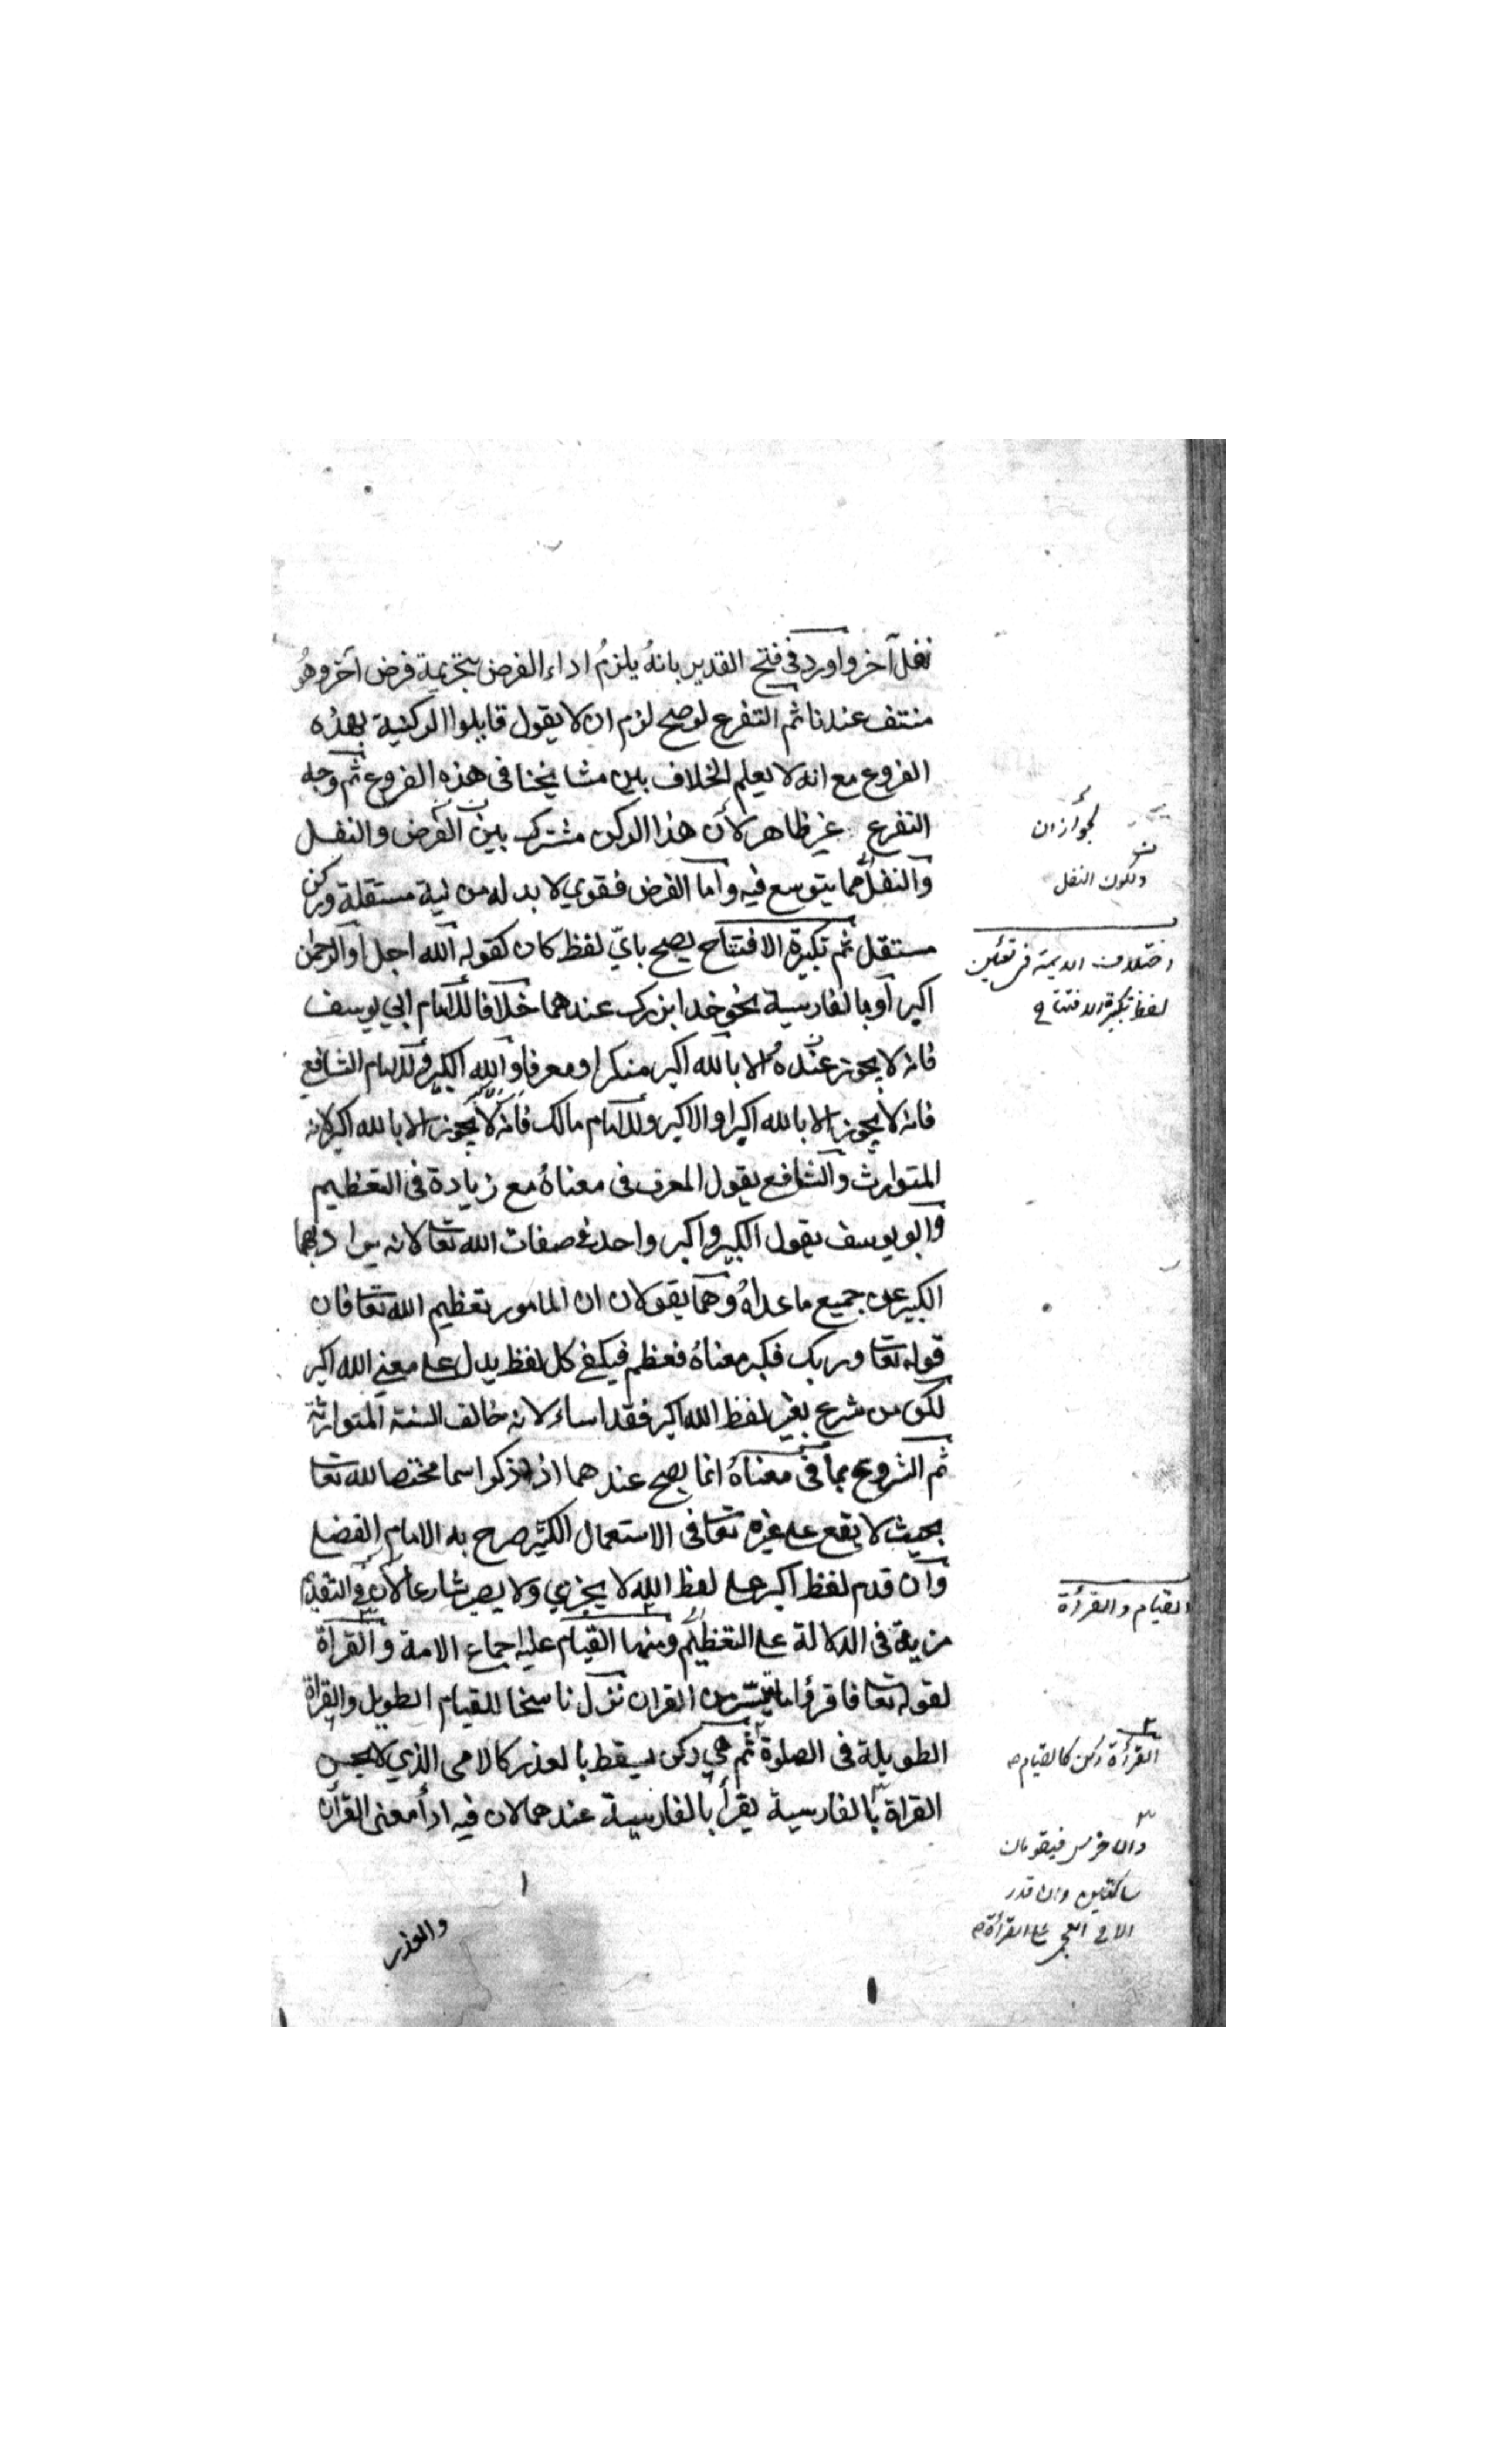 نفل آخر واورد في فتح القدير بانهُ يلزمُ اداء الفرض بتحريمة فرض آخر وهُو
منتف عندنا ثم التفرع لوصح لزم ان لا يقول قابلوا الركنية بهذه
الفروع مع انه لا يعلم الخلاف بين مشايخنا في هذه الفروع ثم وجه
التفرع غير ظاهر لأن هذا الركن مشترك بين الفرض والنفل
والنفل مما يتوسع فيه واما الفرض فقوي لا بد له من نية مستقلة وركن
مستقل ثم تكبيرة الافتتاح يصح باي لفظ كان كقوله الله اجل او الرحمن
اكبر او بالفارسية نحو خدا بزرك عندهما خلافا للامام ابي يوسف
فانه لا يجوز عندهُ الا بالله اكبر منكرا ومعرفا والله الكبير وللامام الشافعي
فانه لا يجوز الا بالله اكبر او الاكبر وللامام مالك فانه لا يجوز الا بالله اكبر لانه
المتوارث والشافع يقول المعرف في معناهُ مع زيادة في التعظيم
وابو يوسف يقول الكبير واكبر واحد في صفات الله تعا لانه يراد بهما
الكبير عن جميع ما عداهُ وهما يقولان ان المامور تعظيم الله تعا فان
قوله تعا وربك فكبر معناهُ فعظم فيكفي كل لفظ يدل على معنى الله اكبر
لكن من شرع بغير لفظ الله اكبر فقد اساء لانه خالف السنة المتوارثة
ثم الشروع بما في معناهُ انما يصح عندهما اذا ذكر اسما مختصا لله تعا
بحيث لا يقع على غيره تعا في الاستعمال الكثير صرح به الامام الفضلي
وان قدم لفظ اكبر على لفظ الله لا يجزي ولا يصير شارعا لان في التقديم
مزية في الدلالة على التعظيم ومنها القيام عليه اجماع الامة والقراة
لقوله تعا فاقرؤا ما تيسر من القران نزل ناسخا للقيام الطويل والقراة
الطويلة في الصلوة ثم هي ركن يسقط بالعذر كالامي الذي لا يحسن
القراة بالفارسية يقرأ بالفارسية عندهما لان فيه ادأ معنى القرآن
والعذر
لجواز ان
ولكون النفل
اختلاف الايمة في تعيين
لفظ تكبيرة الافتتاح
القيام والقرأة
القرأة ركن كالقيام
والاخرس فيقومان
ساكتين وان قدر
الامي العجمي على القرأة